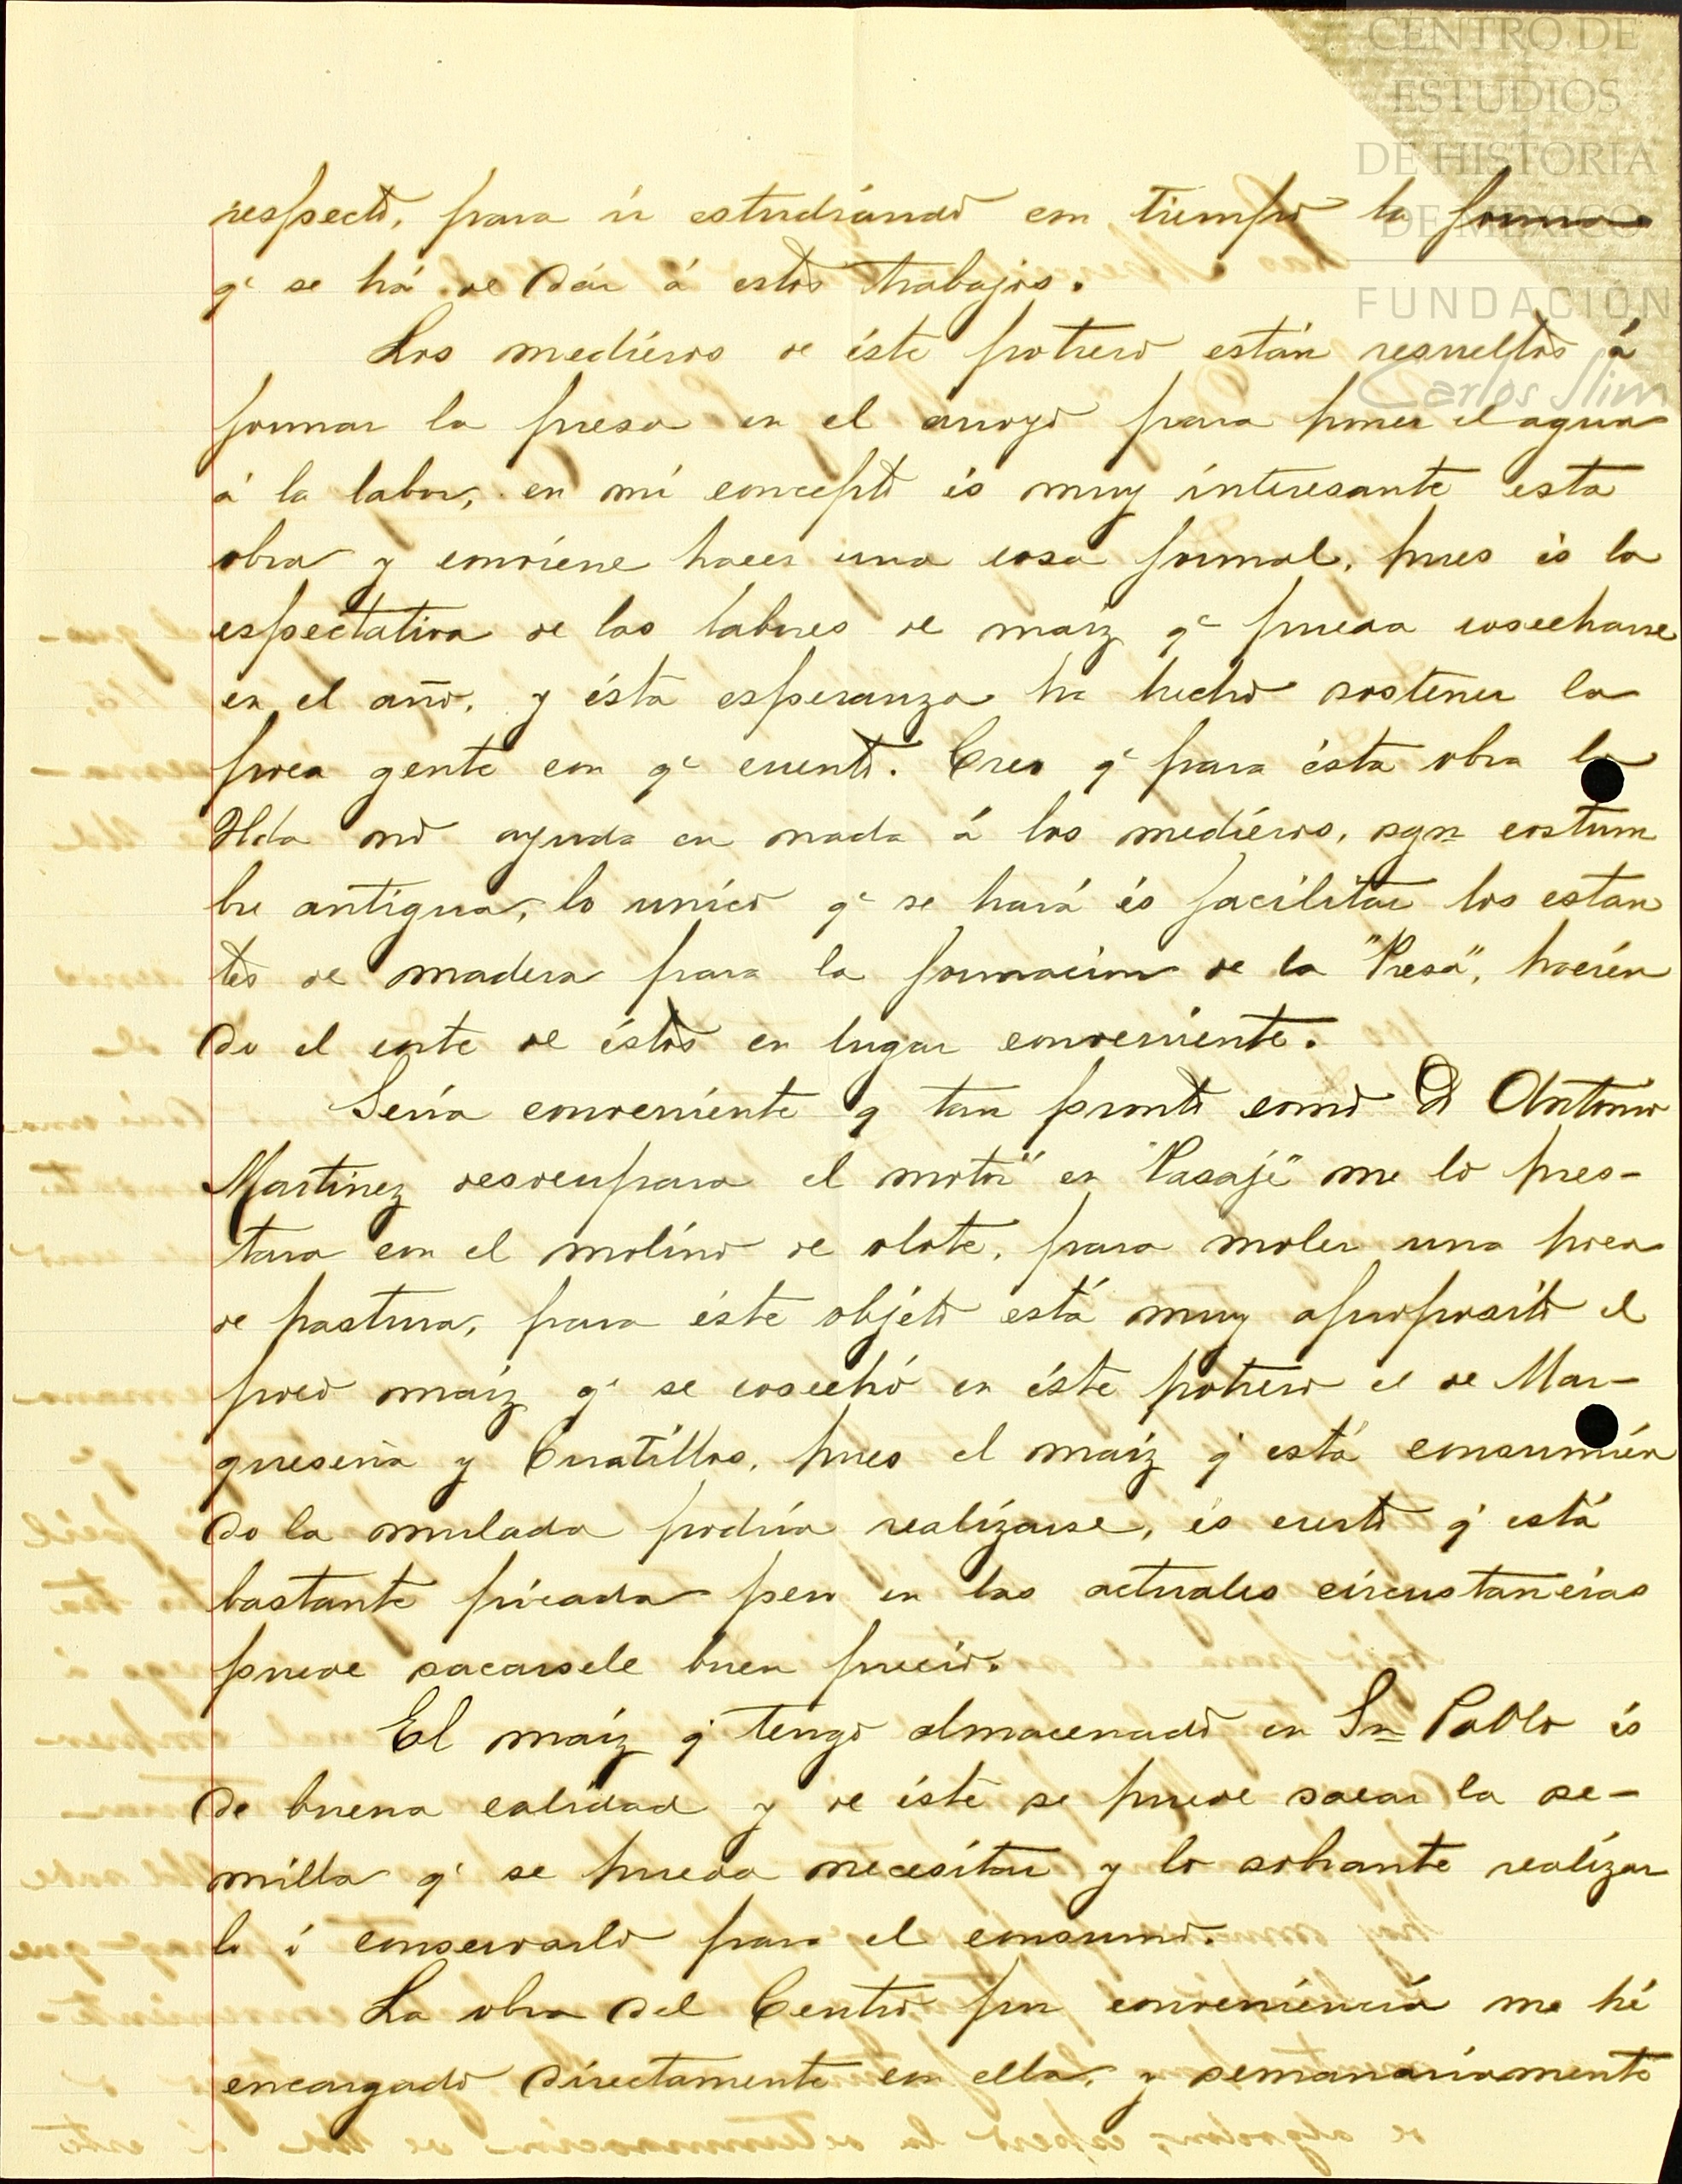 CENTRO DE
ESTUDIOS
DE HISTORIA
DE MEXICO
FUNDACIÓN
Carlos Slim
respecto, para ir estudiándo con tiempo la forma
qe se há de dár á estos trabajos.
Los mediéros de éste potrero están resueltos á
formar la presa en el arroyo para poner el agua
á la labor, en mi concepto és muy interesante esta
obra y conviene hacer una cosa formal, pues és la
espectativa de las labores de maiz qe pueda cosecharse
en el año, y ésta esperanza ha hecho sostener la
poca gente con qe cuento. Creo qe para ésta obra la
Hda no ayuda en nada á los mediéros, sgn costum
bre antigua, lo unico qe se hará és facilitar los estan
tes de madera para la formacion de la "Presa", hacién
do el corte de éstos en lugar conveniente.
Sería conveniente q tan pronto como D Antonio
Martinez desocupara el motor en "Pasaje" me lo pres-
tara con el molino de olote, para moler una poca
de pastura, para éste objéto está muy aproposito el
poco maíz qe se cosechó en éste potrero el de Mar-
queseña y Cuatillos, pues el maíz q está consumién
do la mulada podría realizarse, és cierto q está
bastante picada pero en las actuales circustancias
puede sacarsele buen precio.
El maíz q tengo almacenado en Sn Pablo és
de buena calidad y de éste se puede sacar la se-
milla q se pueda necesitar y lo sobrante realizar
lo ó conservarlo para el consumo.
La obra del Centro por conveniéncia me hé
encargado directamente con ella, y semanariamente